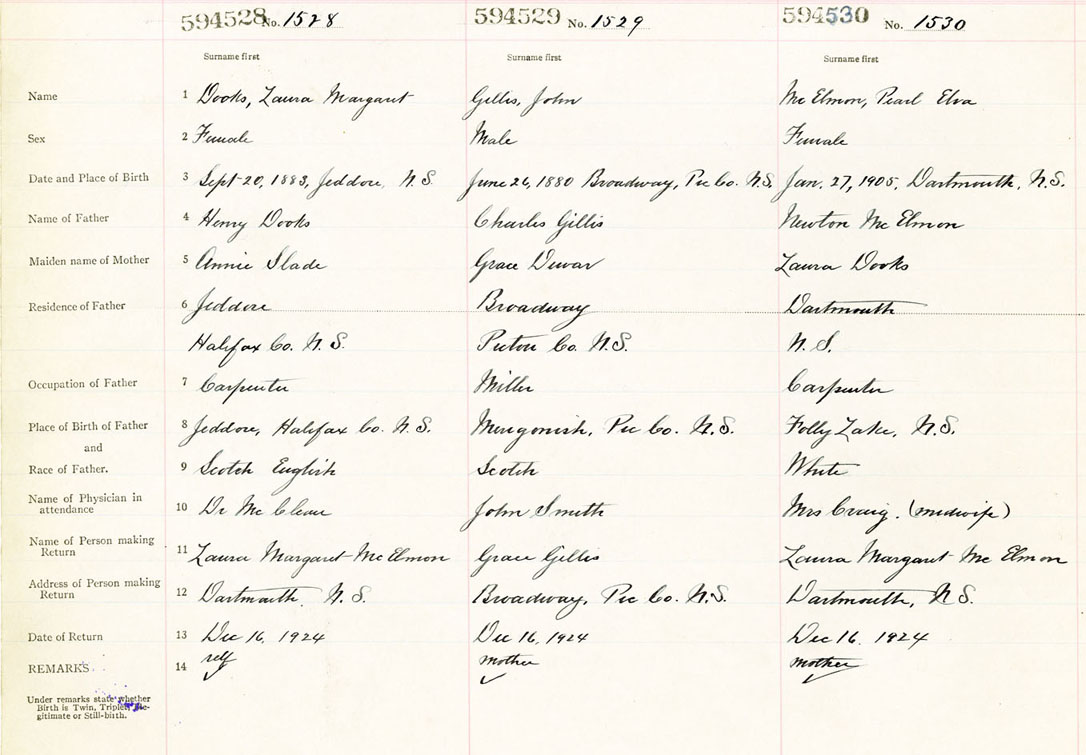 594528 No. 1528 594529 No. 1529 594530 No. 1530
Surname first Surname first Surname first
Name 1 Dooks, Laura Margaret Gillis, John Mc Elmon, Pearl Elva
Sex 2 Female Male Female
Date and Place of Birth 3 Sept 20, 1883, Jeddore, N.S. June 26, 1880 Broadway, Pic Co. N.S. Jan. 27, 1905, Dartmouth, N.S.
Name of Father 4 Henry Dooks Charles Gillis Newton Mc Elmon
Maiden name of Mother 5 Annie Slade Grace Dewar Laura Dooks
Residence of Father 6 Jeddore Broadway Dartmouth
Halifax Co. N.S. Pictou Co. N.S. N.S.
Occupation of Father 7 Carpenter Miller Carpenter
Place of Birth of Father 8 Jeddore, Halifax Co. N.S. Merigonish, Pic Co. N.S. Folly Lake, N.S.
and
Race of Father. 9 Scotch English Scotch White
Name of Physician in
attendance 10 Dr Mc Clean John Smith Mrs Craig. (midwife)
Name of Person making
Return 11 Laura Margaret Mc Elmon Grace Gillis Laura Margaret Mc Elmon
Address of Person making
Return 12 Dartmouth, N.S. Broadway, Pic Co. N.S. Dartmouth, N.S.
Date of Return 13 Dec 16, 1924 Dec 16, 1924 Dec 16, 1924
REMARKS 14 self mother mother
Under remarks state whether
Birth is Twin, Triplet, Ille-
gitimate or Still-birth.